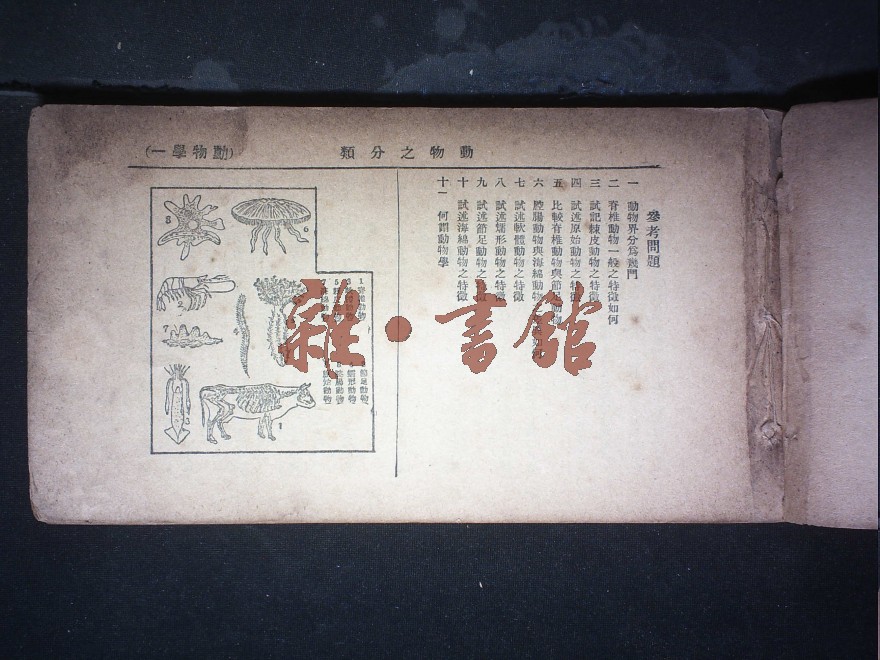 動物之分類
(動物學一)
參考問題
一 動物界分為幾門
二 脊椎動物一般之特徵如何
三 試記棘皮動物之特徵
四 試述原始動物之特徵
五 比較脊椎動物與節足動物
六 腔腸動物與海綿動物之
七 試述軟體動物之特徵
八 試述蠕形動物之特徵
九 試述節足動物之特徵
十 試述海綿動物之特徵
十一 何謂動物學
雜·書館
1
2
4
6
7
8